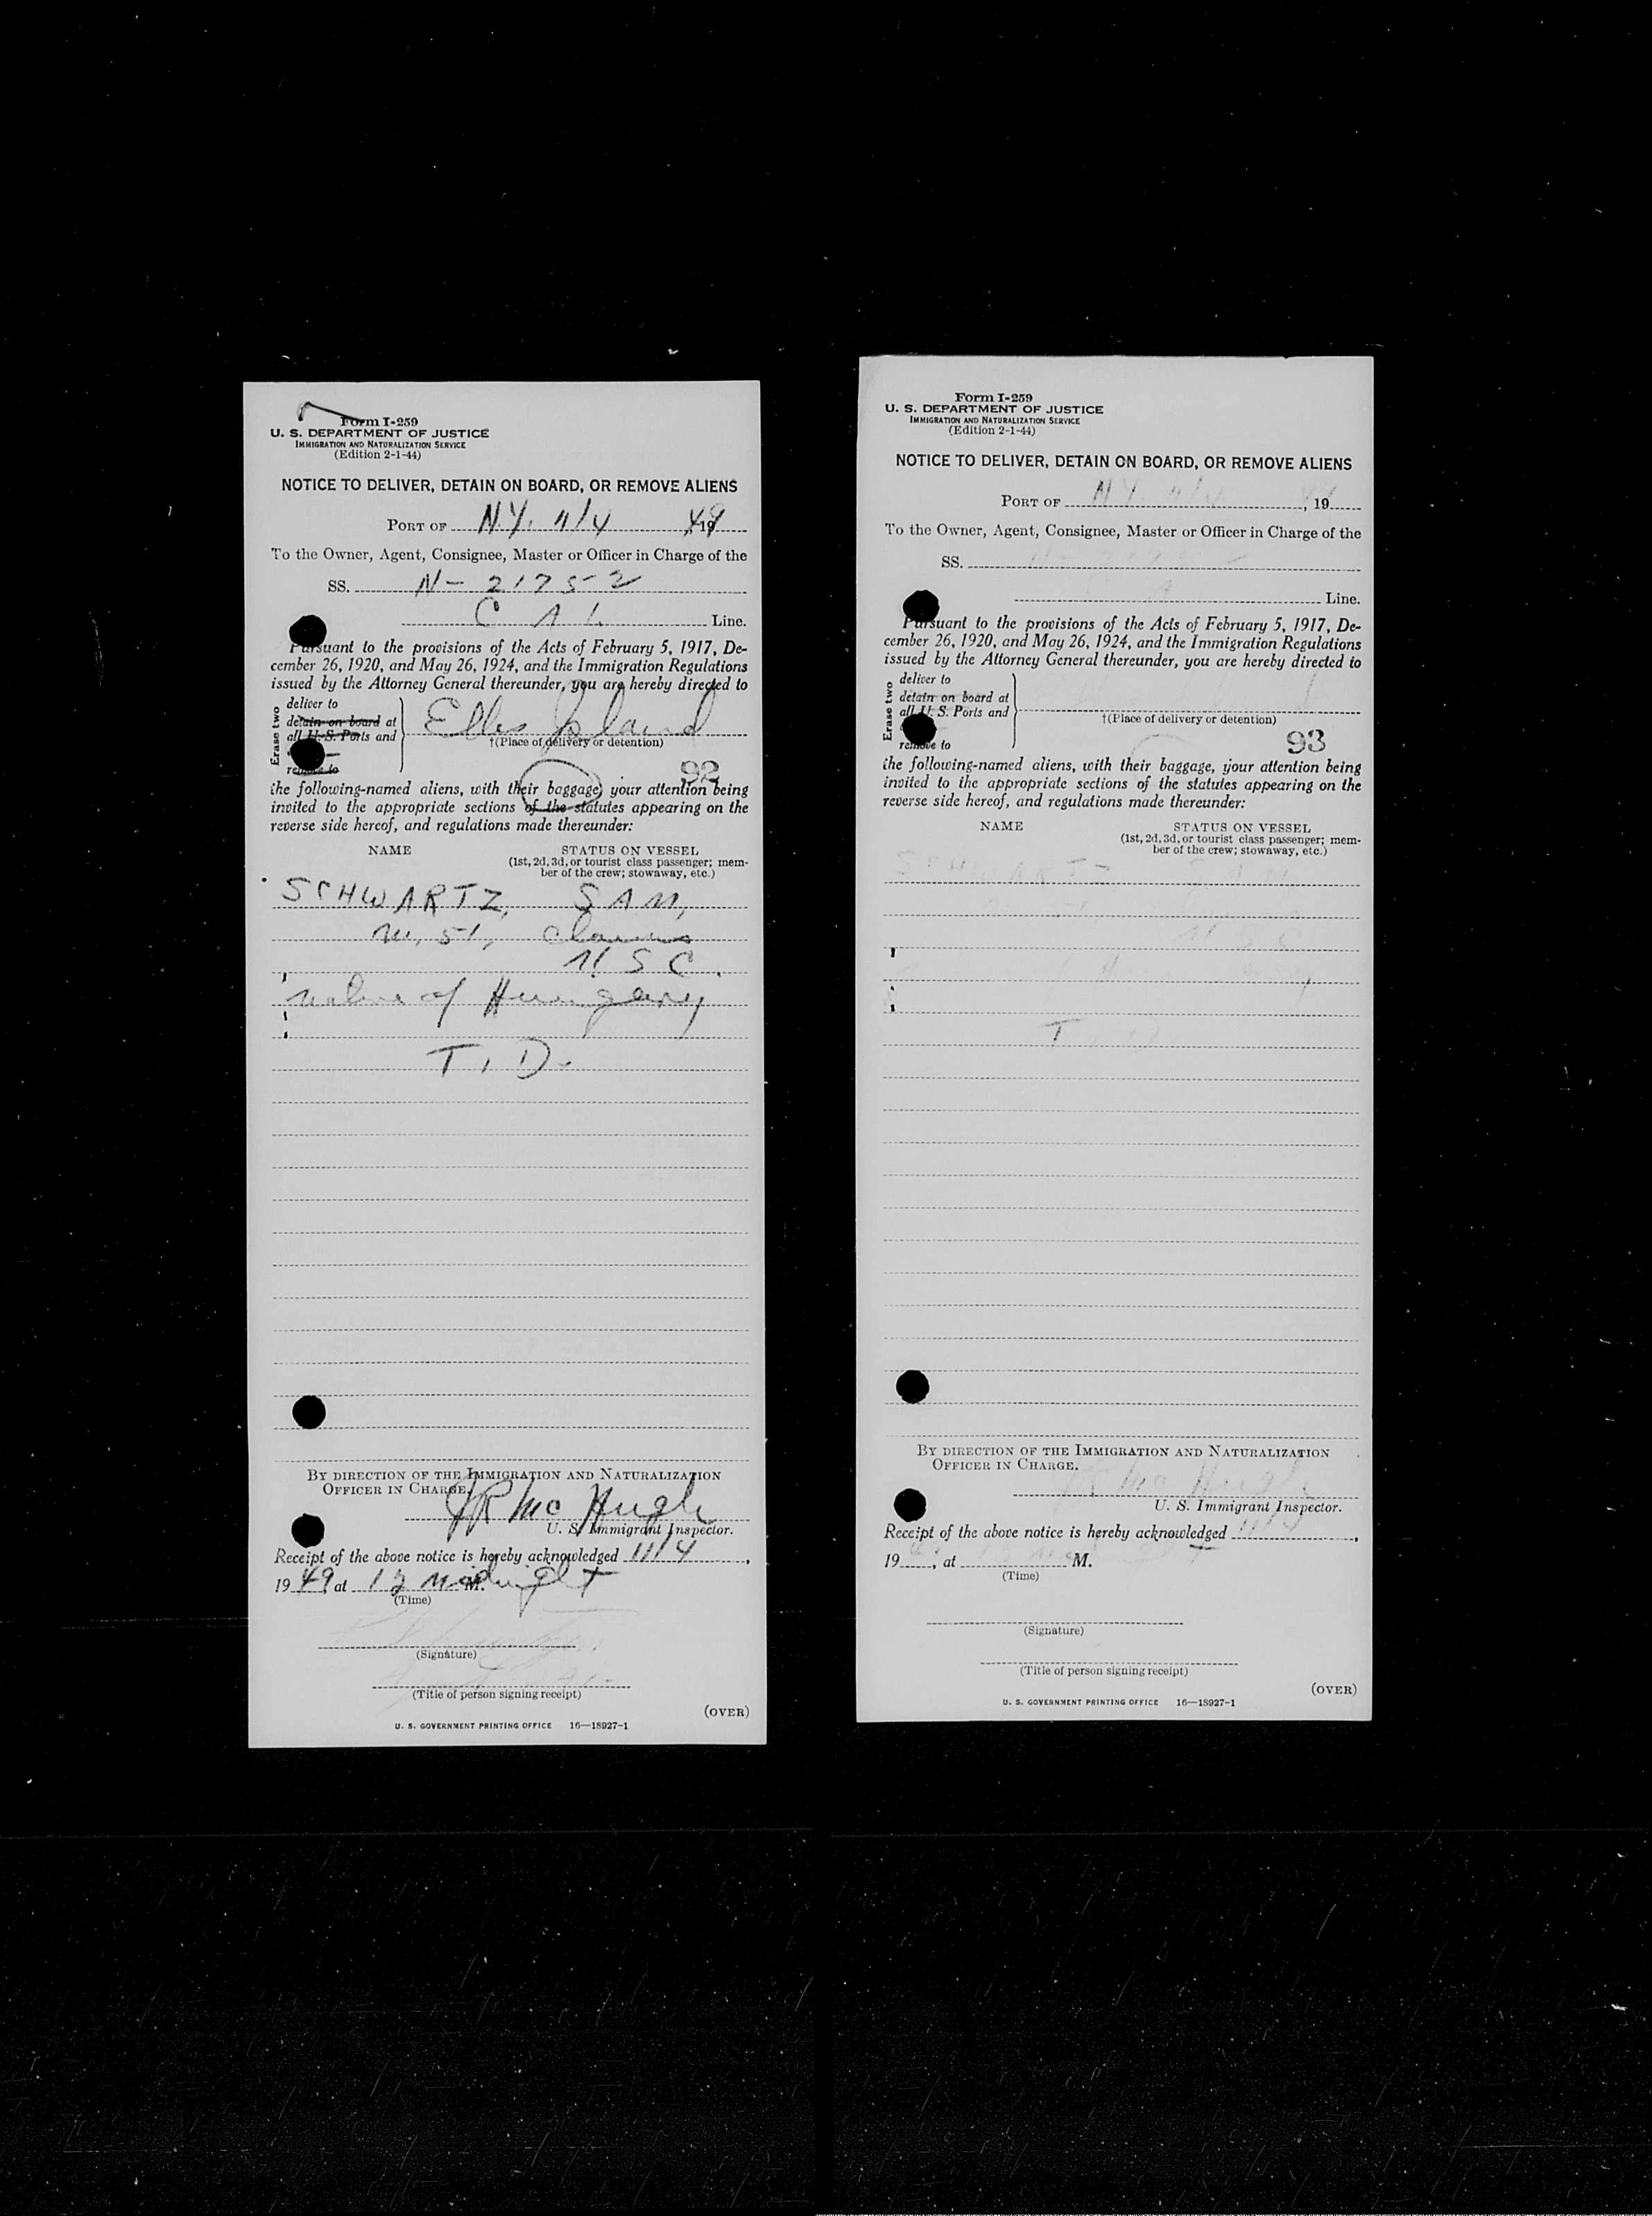 Form I-259
U. S. DEPARTMENT OF JUSTICE
IMMIGRATION AND NATURALIZATION SERVICE
(Edition 2-1-44)
NOTICE TO DELIVER, DETAIN ON BOARD, OR REMOVE ALIENS
PORT OF N.Y. 11/4, 1949
To the Owner, Agent, Consignee, Master or Officer in Charge of the
SS. N-21752
C A L Line.
Pursuant to the provisions of the Acts of February 5, 1917, De-
cember 26, 1920, and May 26, 1924, and the Immigration Regulations
issued by the Attorney General thereunder, you are hereby directed to
Erase two
deliver to
detain on board at
all U. S. Ports and
remove to
Ellis Island
†(Place of delivery or detention)
92
the following-named aliens, with their baggage, your attention being
invited to the appropriate sections of the statutes appearing on the
reverse side hereof, and regulations made thereunder:
NAME STATUS ON VESSEL
(1st, 2d, 3d, or tourist class passenger; mem-
ber of the crew; stowaway, etc.)
SCHWARTZ, SAM,
m, 51, Claims
U S C.
native of Hungary
T. D.
BY DIRECTION OF THE IMMIGRATION AND NATURALIZATION
OFFICER IN CHARGE.
JR McHugh
U. S. Immigrant Inspector.
Receipt of the above notice is hereby acknowledged 11/4,
1949, at 12 midnight M.
(Time)
(Signature)
(Title of person signing receipt)
(OVER)
U. S. GOVERNMENT PRINTING OFFICE 16—18927-1
Form I-259
U. S. DEPARTMENT OF JUSTICE
IMMIGRATION AND NATURALIZATION SERVICE
(Edition 2-1-44)
NOTICE TO DELIVER, DETAIN ON BOARD, OR REMOVE ALIENS
PORT OF N.Y. 11/4, 1949
To the Owner, Agent, Consignee, Master or Officer in Charge of the
SS.
Line.
Pursuant to the provisions of the Acts of February 5, 1917, De-
cember 26, 1920, and May 26, 1924, and the Immigration Regulations
issued by the Attorney General thereunder, you are hereby directed to
Erase two
deliver to
detain on board at
all U. S. Ports and
remove to
†(Place of delivery or detention)
93
the following-named aliens, with their baggage, your attention being
invited to the appropriate sections of the statutes appearing on the
reverse side hereof, and regulations made thereunder:
NAME STATUS ON VESSEL
(1st, 2d, 3d, or tourist class passenger; mem-
ber of the crew; stowaway, etc.)
SCHWARTZ SAM
U S C
T. D.
BY DIRECTION OF THE IMMIGRATION AND NATURALIZATION
OFFICER IN CHARGE.
JR McHugh
U. S. Immigrant Inspector.
Receipt of the above notice is hereby acknowledged 11/4,
19, at M.
(Time)
(Signature)
(Title of person signing receipt)
(OVER)
U. S. GOVERNMENT PRINTING OFFICE 16—18927-1